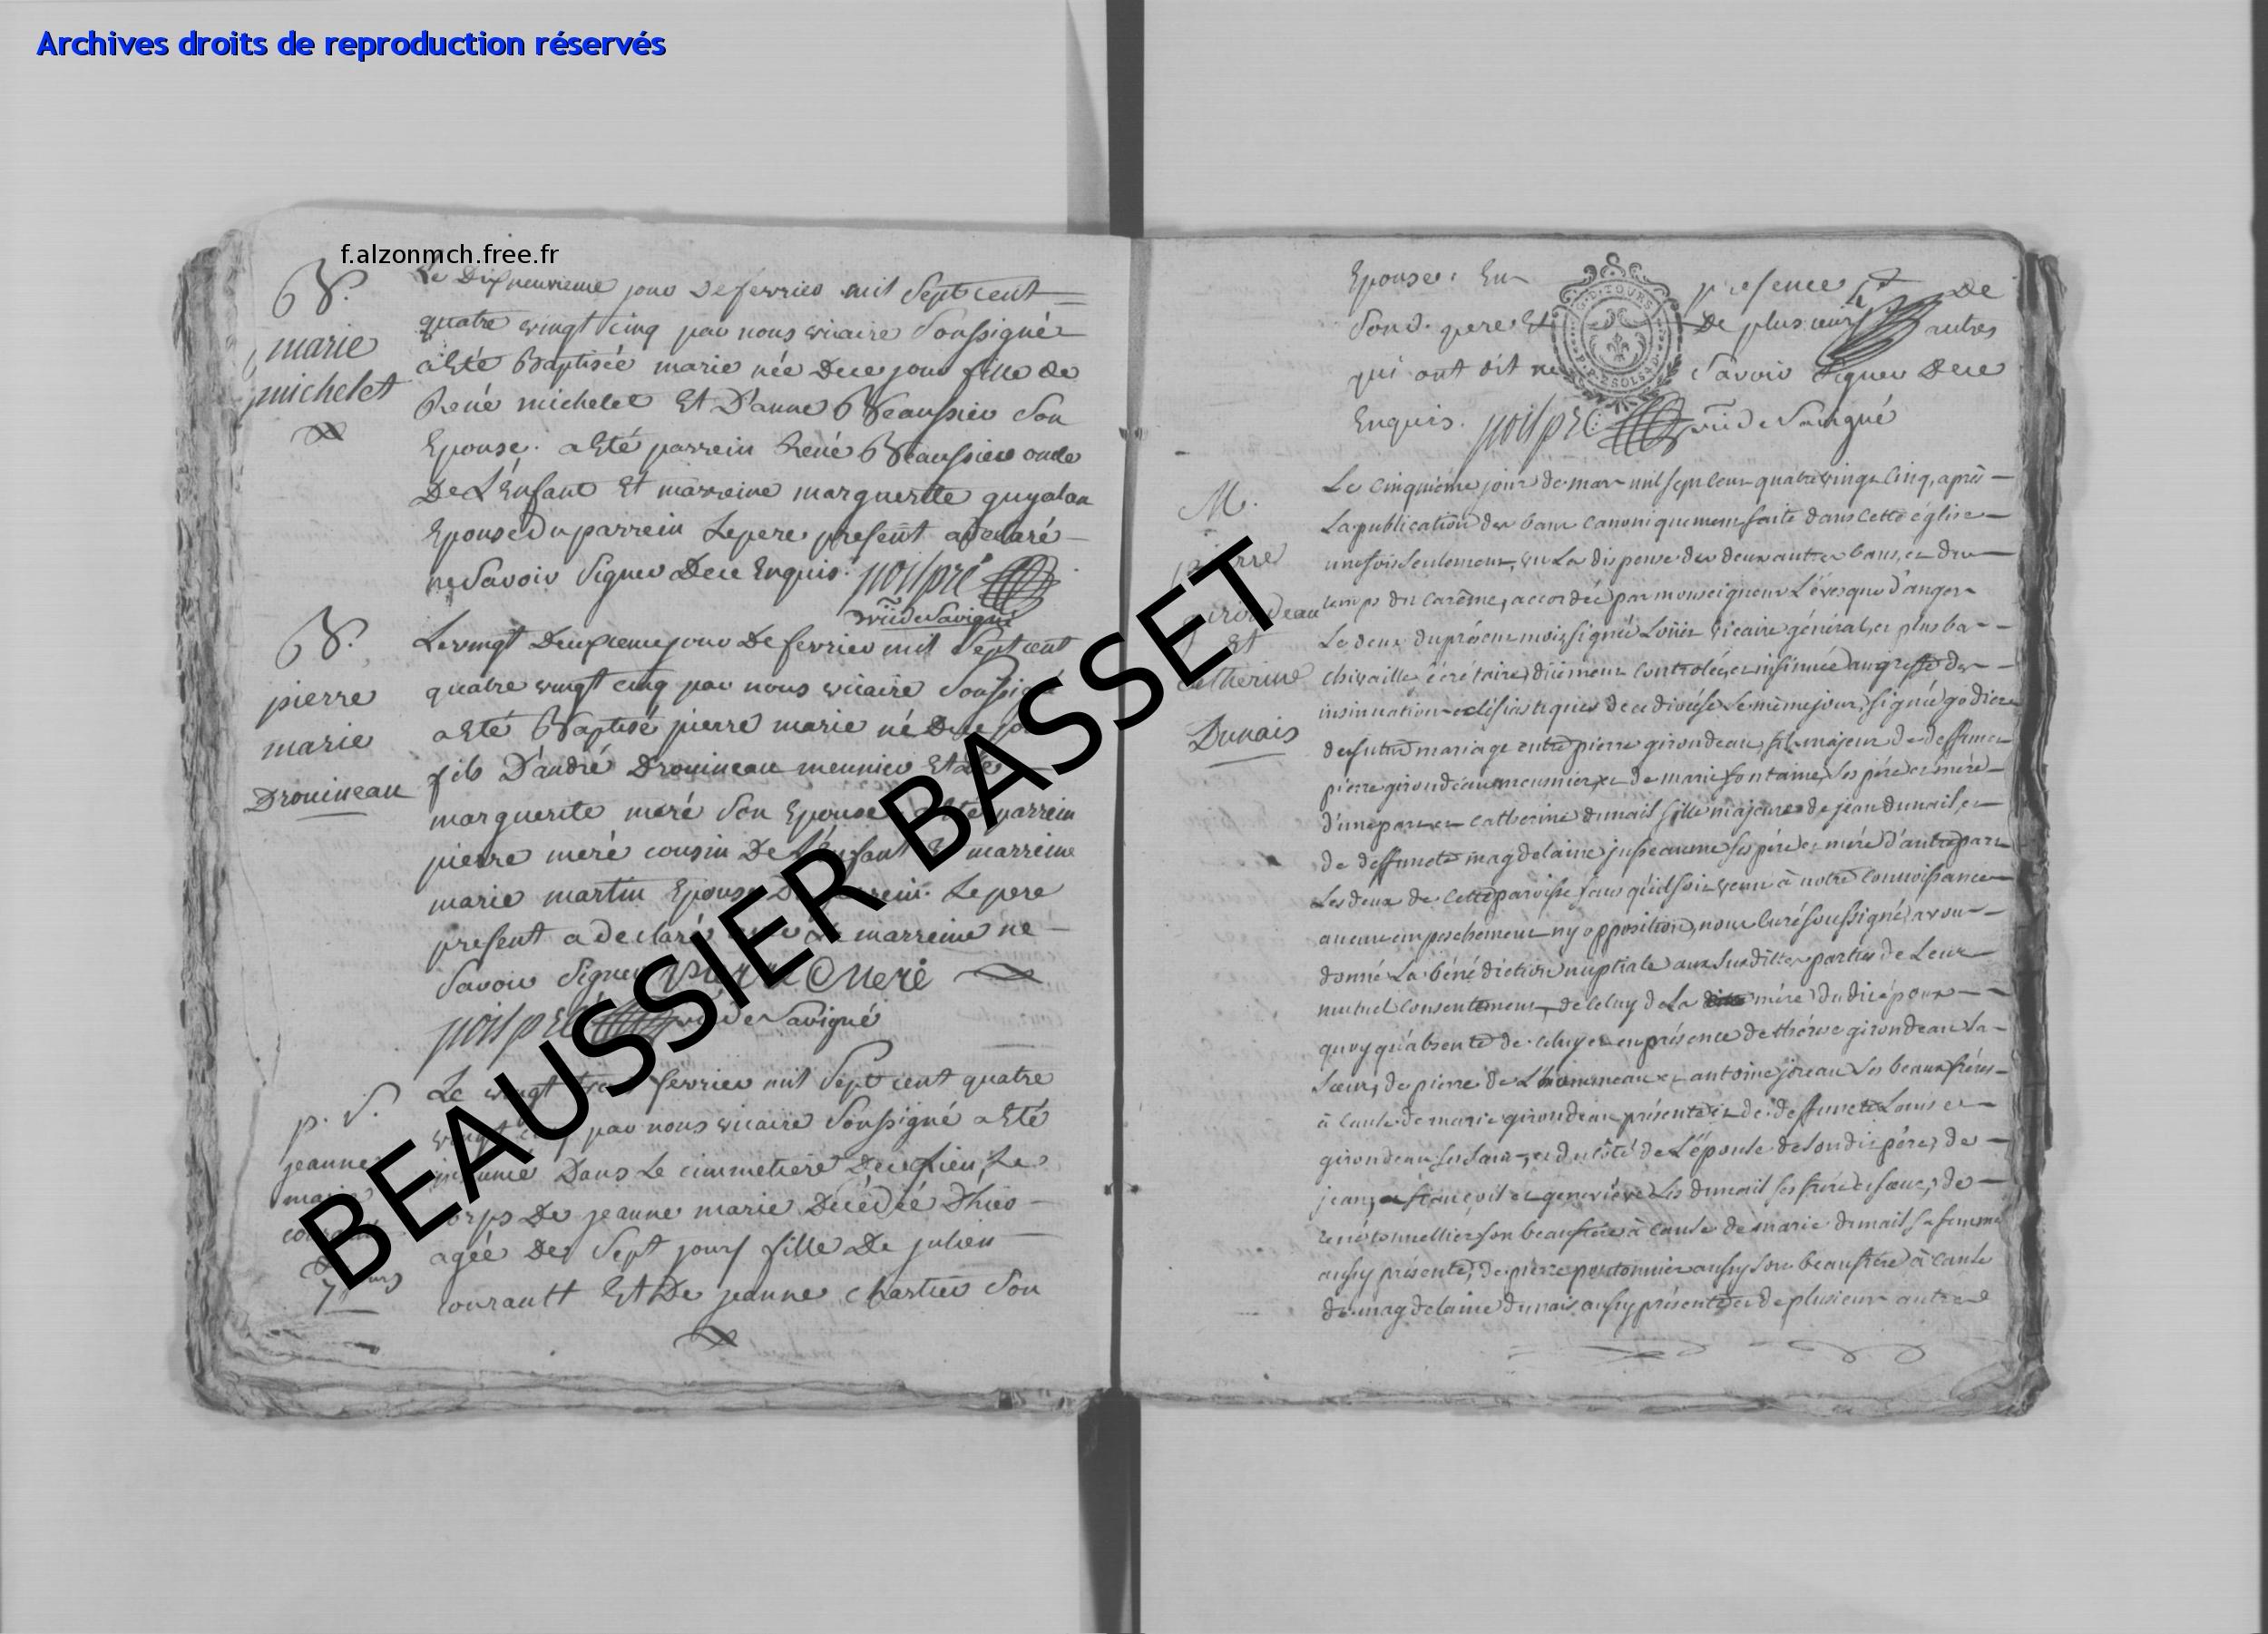 Archives droits de reproduction réservés
f.alzonmch.free.fr
BEAUSSIER BASSET
B.
marie
michelet
Le Dixneuvieme jour de fevrier mil Sept cent
quatre vingt cinq par nous vicaire Soussigné
a Eté Baptisée marie née De ce jour fille de
René michelet Et D'anne Beaussier Son
Epouse. a Eté parrein René Beaussier oncle
De L'Enfant Et marreine marguerite
Epouse Du parrein Le pere present a declaré
ne Savoir Signer De ce Enquis. poilpré
vic de Savigné
B.
pierre
marie
Drouineau
Le vingt Deuxieme jour De fevrier mil Sept cent
quatre vingt cinq par nous vicaire
a Eté Baptisé pierre marie né De ce
fils D'andré Drouineau meunier Et de
marguerite meré Son Epouse a Eté parrein
pierre meré cousin De L'Enfant Et marreine
marie martin Epouse Du parrein. Le pere
present a declaré marreine ne
Savoir Signer Pierre Meré
poilpré vic de Savigné
p. S.
jeanne
marie
Le vingt fevrier mil Sept cent quatre
vingt par nous vicaire Soussigné a Eté
inhumé Dans Le cimmetiere De ce Lieu Le
corps De jeanne marie Décédée D'hier
agée De Sept jours fille De julien
courautt Et De jeanne chartier Son
Epouse. En presence De
Sond. pere Et De plusieurs autres
qui ont dit ne Savoir Signer De ce
Enquis. poilpré vic de Savigné
G. D. TOURS
M.
pierre
girondeau
Et
Catherine
Dunais
Le cinquiéme jour de mars mil sept cent quatre vingt cinq, après
La publication des bans canoniquement faite dans cette église
une fois seulement, vu La dispense des deux autres bans, et du
temps du carême, accordée par monseigneur L'évesque d'angers
Le deux du présent mois, signé Louis vicaire général, et plus bas
chivaille sécrétaire, duement controlée et insinuée au greffe des
insinuations eclésiastiques de ce diocése Le même jour, signé godiere
du futur mariage entre pierre girondeau, fils majeur de deffunct
pierre girondeau meusnier, et de marie fontaine, ses pére et mére
d'une part, et catherine dunais fille majeure de jean dunais, et
de deffuncte magdelaine jusseaume ses pére et mére d'autre part
Les deux de cette paroisse sans qu'il soit venu à notre connoissance
aucun empeschement ny opposition, nous curé soussigné, avons
donné La bénédiction nuptiale aux susdittes parties de Leur
mutuel consentement, de celuy de La mére dudit époux
quoy qu'absente de celuy et en présence de thérese girondeau sa
sœur, de pierre de L'hommeau et antoine joreau ses beaux fréres
à cause de marie girondeau présente et de deffuncte Louise
girondeau ses sœurs, et du côté de L'épouse de son dit pére, de
jean, françois et geneviéve Les dunais ses frére et sœur, de
rené tonnellier son beaufrére à cause de marie dunais sa femme
aussy présente, de pierre aussy son beaufrére à cause
de magdelaine dunais aussy présente et de plusieurs autres